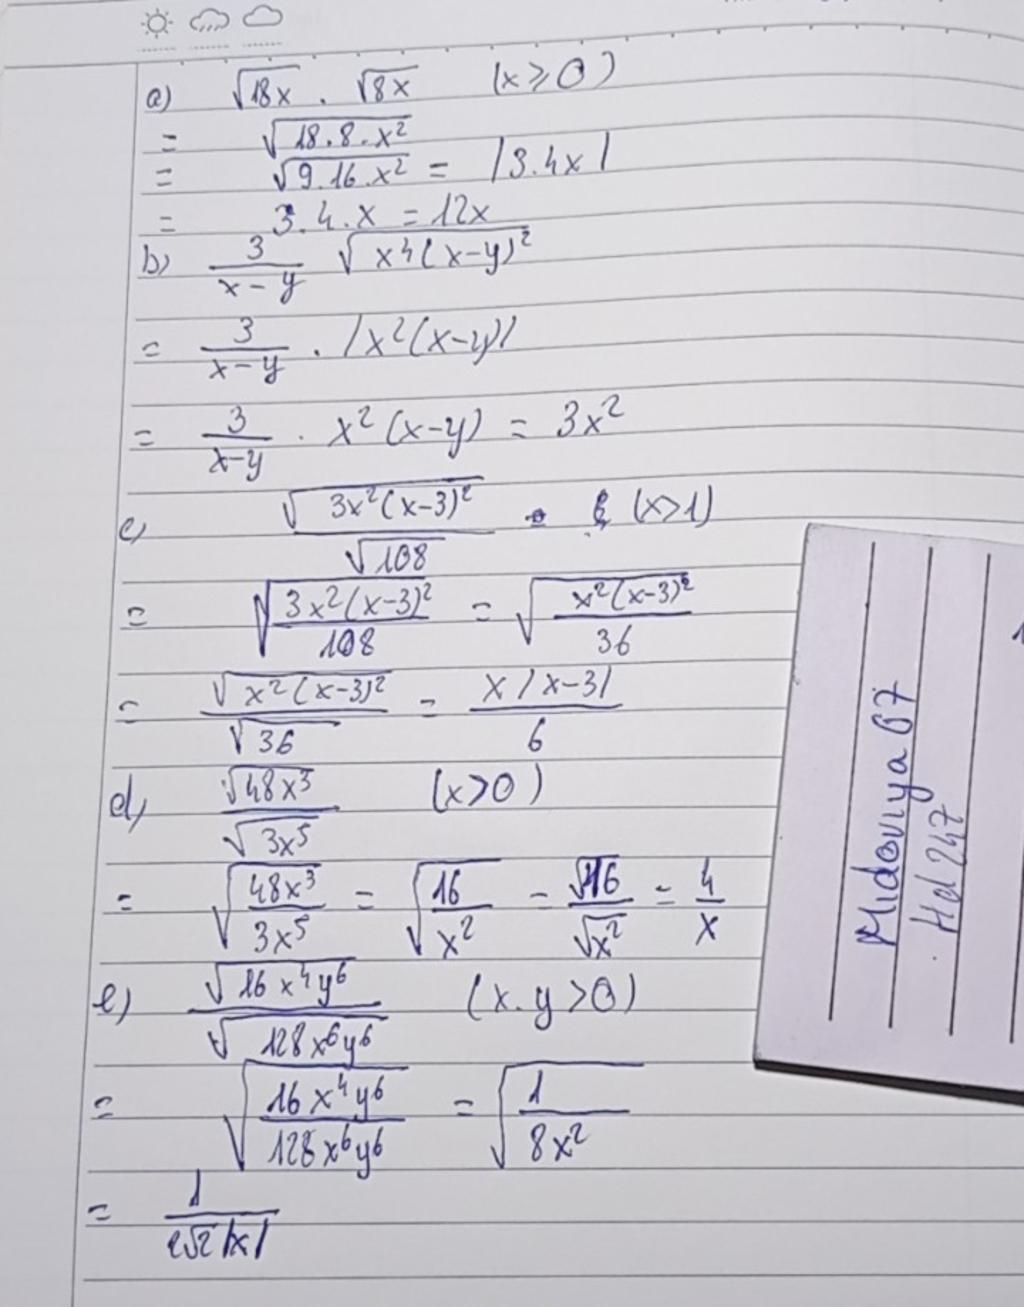 a) √18x . √8x (x ≥ 0)
= √18.8.x²
= √9.16.x² = |3.4x|
= 3.4.x = 12x
b) 3/(x-y) √x⁴(x-y)²
= 3/(x-y) . |x²(x-y)|
= 3/(x-y) . x²(x-y) = 3x²
c) √3x²(x-3)² / √108 (x>1)
= √(3x²(x-3)²/108) = √(x²(x-3)²/36)
= √x²(x-3)² / √36 = x|x-3| / 6
d) √48x³ / √3x⁵ (x>0)
= √(48x³/3x⁵) = √(16/x²) = √16/√x² = 4/x
e) √16x⁴y⁶ / √128x⁶y⁶ (x.y>0)
= √(16x⁴y⁶/128x⁶y⁶) = √(1/8x²)
= 1/(2√2|x|)
Midoviya 07
. Hol 247